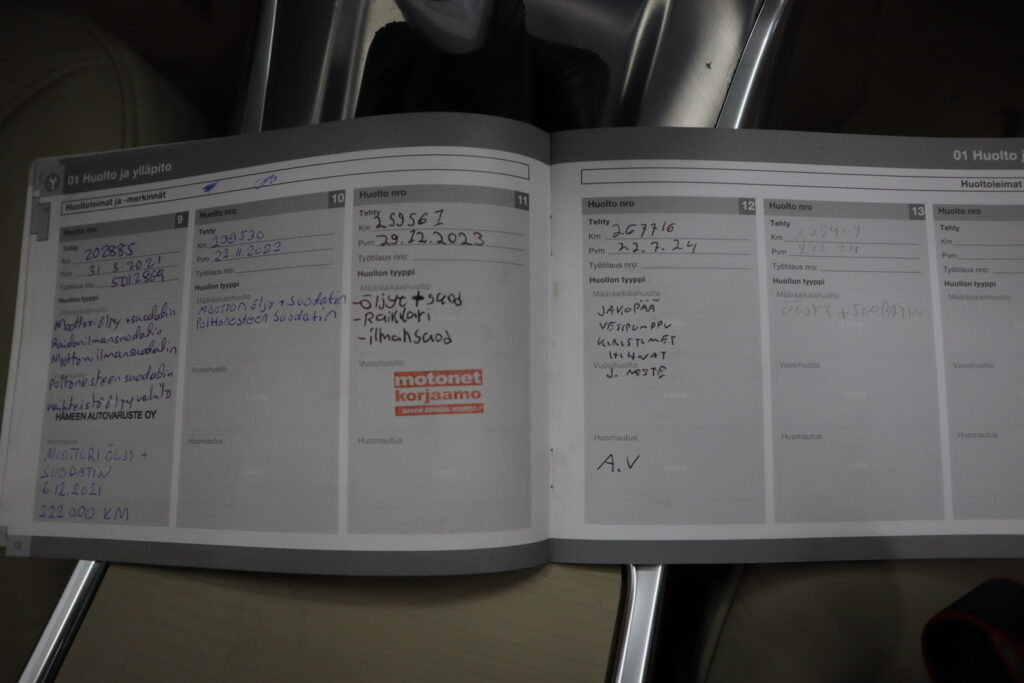 01 Huolto ja ylläpito
Huoltoleimat ja -merkinnät
Huolto nro 9
Tehty
Km 202885
Pvm 31 3.2021
Työtilaus nro: 5012869
Huollon tyyppi
Määräaikaishuolto
Moottoriöljy + suodatin
Raidonilmansuodatin
Moottorinilmansuodatin
Polttonesteensuodatin
Vaihteistoöljy vaihto
HÄMEEN AUTOVARUSTE OY
Huomautus
MOOTTORI ÖLJY +
SUODATIN
6.12.2021
222 000 KM
12
Huolto nro 10
Tehty
Km 239530
Pvm 22.11.2022
Työtilaus nro:
Huollon tyyppi
Määräaikaishuolto
Moottori öljy + suodatin
Polttonesteen suodatin
Vuosihuolto
Leima
Huomautus
Leima
Huolto nro 11
Tehty
Km 259561
Pvm 29.12.2023
Työtilaus nro:
Huollon tyyppi
Määräaikaishuolto
-öljyt + suod
-Raikkari
-ilmansuod
Vuosihuolto
motonet
korjaamo
Huomautus
Leima
01 Huolto j
Huoltoleimat
Huolto nro 12
Tehty
Km 267716
Pvm 22.7.24
Työtilaus nro:
Huollon tyyppi
Määräaikaishuolto
JAKOPÄÄ
VESIPUMPPU
KIRISTIMET
HIHNAT
Vuosihuolto
J. NESTE
Leima
Huomautus
A.V
Leima
Huolto nro 13
Tehty
Km
Pvm
Työtilaus nro:
Huollon tyyppi
Määräaikaishuolto
ÖLJYT + SUODATIN
Leima
Vuosihuolto
Leima
Huomautus
Leima
Huolto nro
Tehty
Km
Pvm
Työtilaus nro:
Huollon tyyppi
Määräaikaishuolto
Vuosihuolto
Huomautus